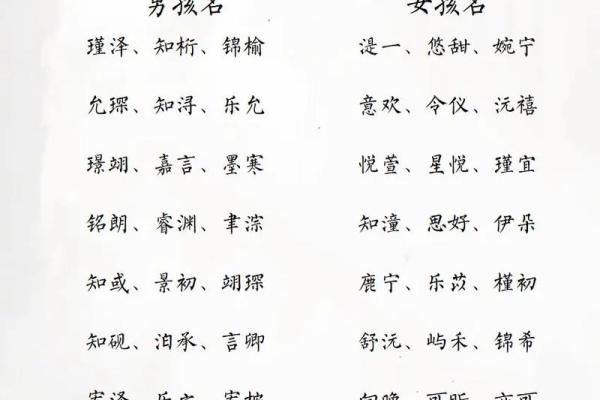 男孩名 女孩名
瑾泽、知桁、锦榆 湜一、悠甜、婉宁
允琛、知浔、乐允 意欢、令仪、沅禧
璟翊、嘉言、墨寒 悦萱、星悦、瑾宜
铭朗、睿渊、聿淙 知潼、思好、伊朵
知或、景初、翊琛 鹿宁、乐苡、槿初
知砚、泊承、言卿 舒沅、屿禾、锦希